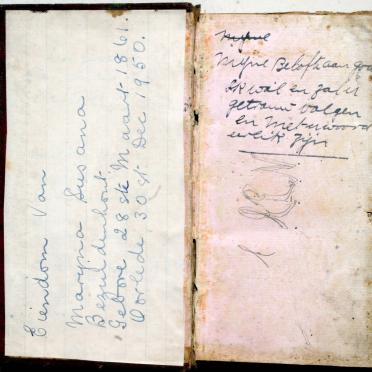 Eiendom Van
Maryna Susana
Bezuidenhout.
Gebore 28ste Maart 1861.
Oorlede 30st Dec 1950.
Myne
Myne Belofte aan god
Ik wil en zal u
getrouw volgen
en Met u woord
eerlik zijn